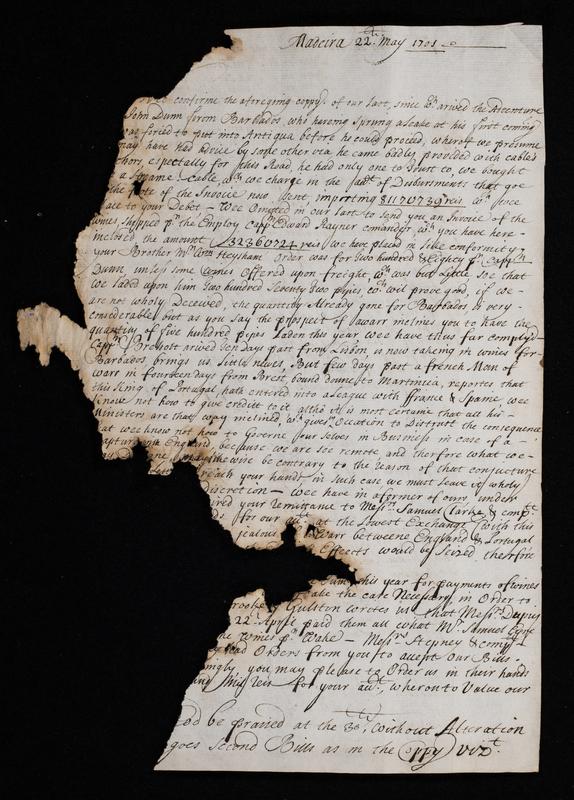 Madeira 22th. May 1701
confirme the aforegoing coppy of our Last, since wch arived the Adventure
John Dunn from Barbados, who haveing Sprung a Leake at his first coming
was forced to put into Antigua before he could proceed, whereof we presume
may have had advice by some other via he came badly provided with cable's
espectially for this Road, he had only one to Trust to, we bought
a Streame Cable, wch we charge in the of Disbursments that goe
the foote of the Invoice now went, importing 811070730 reis wch place
to your Debet - Wee Omitted in our Last to Send you an Invoice of the
wines shipped pr the Employ Capt Edward Rayner comander wch you have here-
inclosed the amount 32360724 reis we have placed in like conformity
your Brother Mr Wm Heysham order was for two hundred & Eighty ps Capt
Dunn, unless some wines Offered upon freight, wch was but Little Soe that
we Laded upon him Two hundred Seventy Two pipes wch wil prove good, if we
are not wholy Deceived, the quantity Already gone for Barbados is very
considerable but as you say the prospect of a warr inclines you to have the
quantity of five hundred pipes Laden this year wee have thus far complyd
Capt arived ten Days past from Lisbon is now takeing in wines for
Barbados, brings us little news, But few days past a french Man of
warr in fourteen days from Brest, bound downe to Martineca, reportes that
this King of Portugal hath entered into a League with ffrance & Spaine, wee
know not how to give creditt to it altho it is most certaine that all his
Ministers are that way inclined, wch gives Occation to Distrust the consequence
that wee know not how to Governe our Selves in Business in case of a
rapture with England, because we are see remote and therfore what we
likewise be contrary to the reason of that conjuncture
reach your hands, in Such case we must leave it wholy
discretion - wee have in a former of ours under
your Remittance to Messrs. Samuel Clarke & compt
for our acct. at the Lowest Exchange with this
jealous warr betweene England & Portugal
Effects would be Seized therfore
this year for payments of wines
take the care Necessary, in Order to
Brooke & Gulston writes us that Messrs. Dupuy
22 April paid them all what Mr. Samuel
the wines pr - Messrs Stepney & compt
had Orders from you to accept our Bills
you may please to Order us in their hands
for your acct, wheron to Value our
God be praised at the 30th, without Alteration
goes Second Bills as in the Coppy vizt.